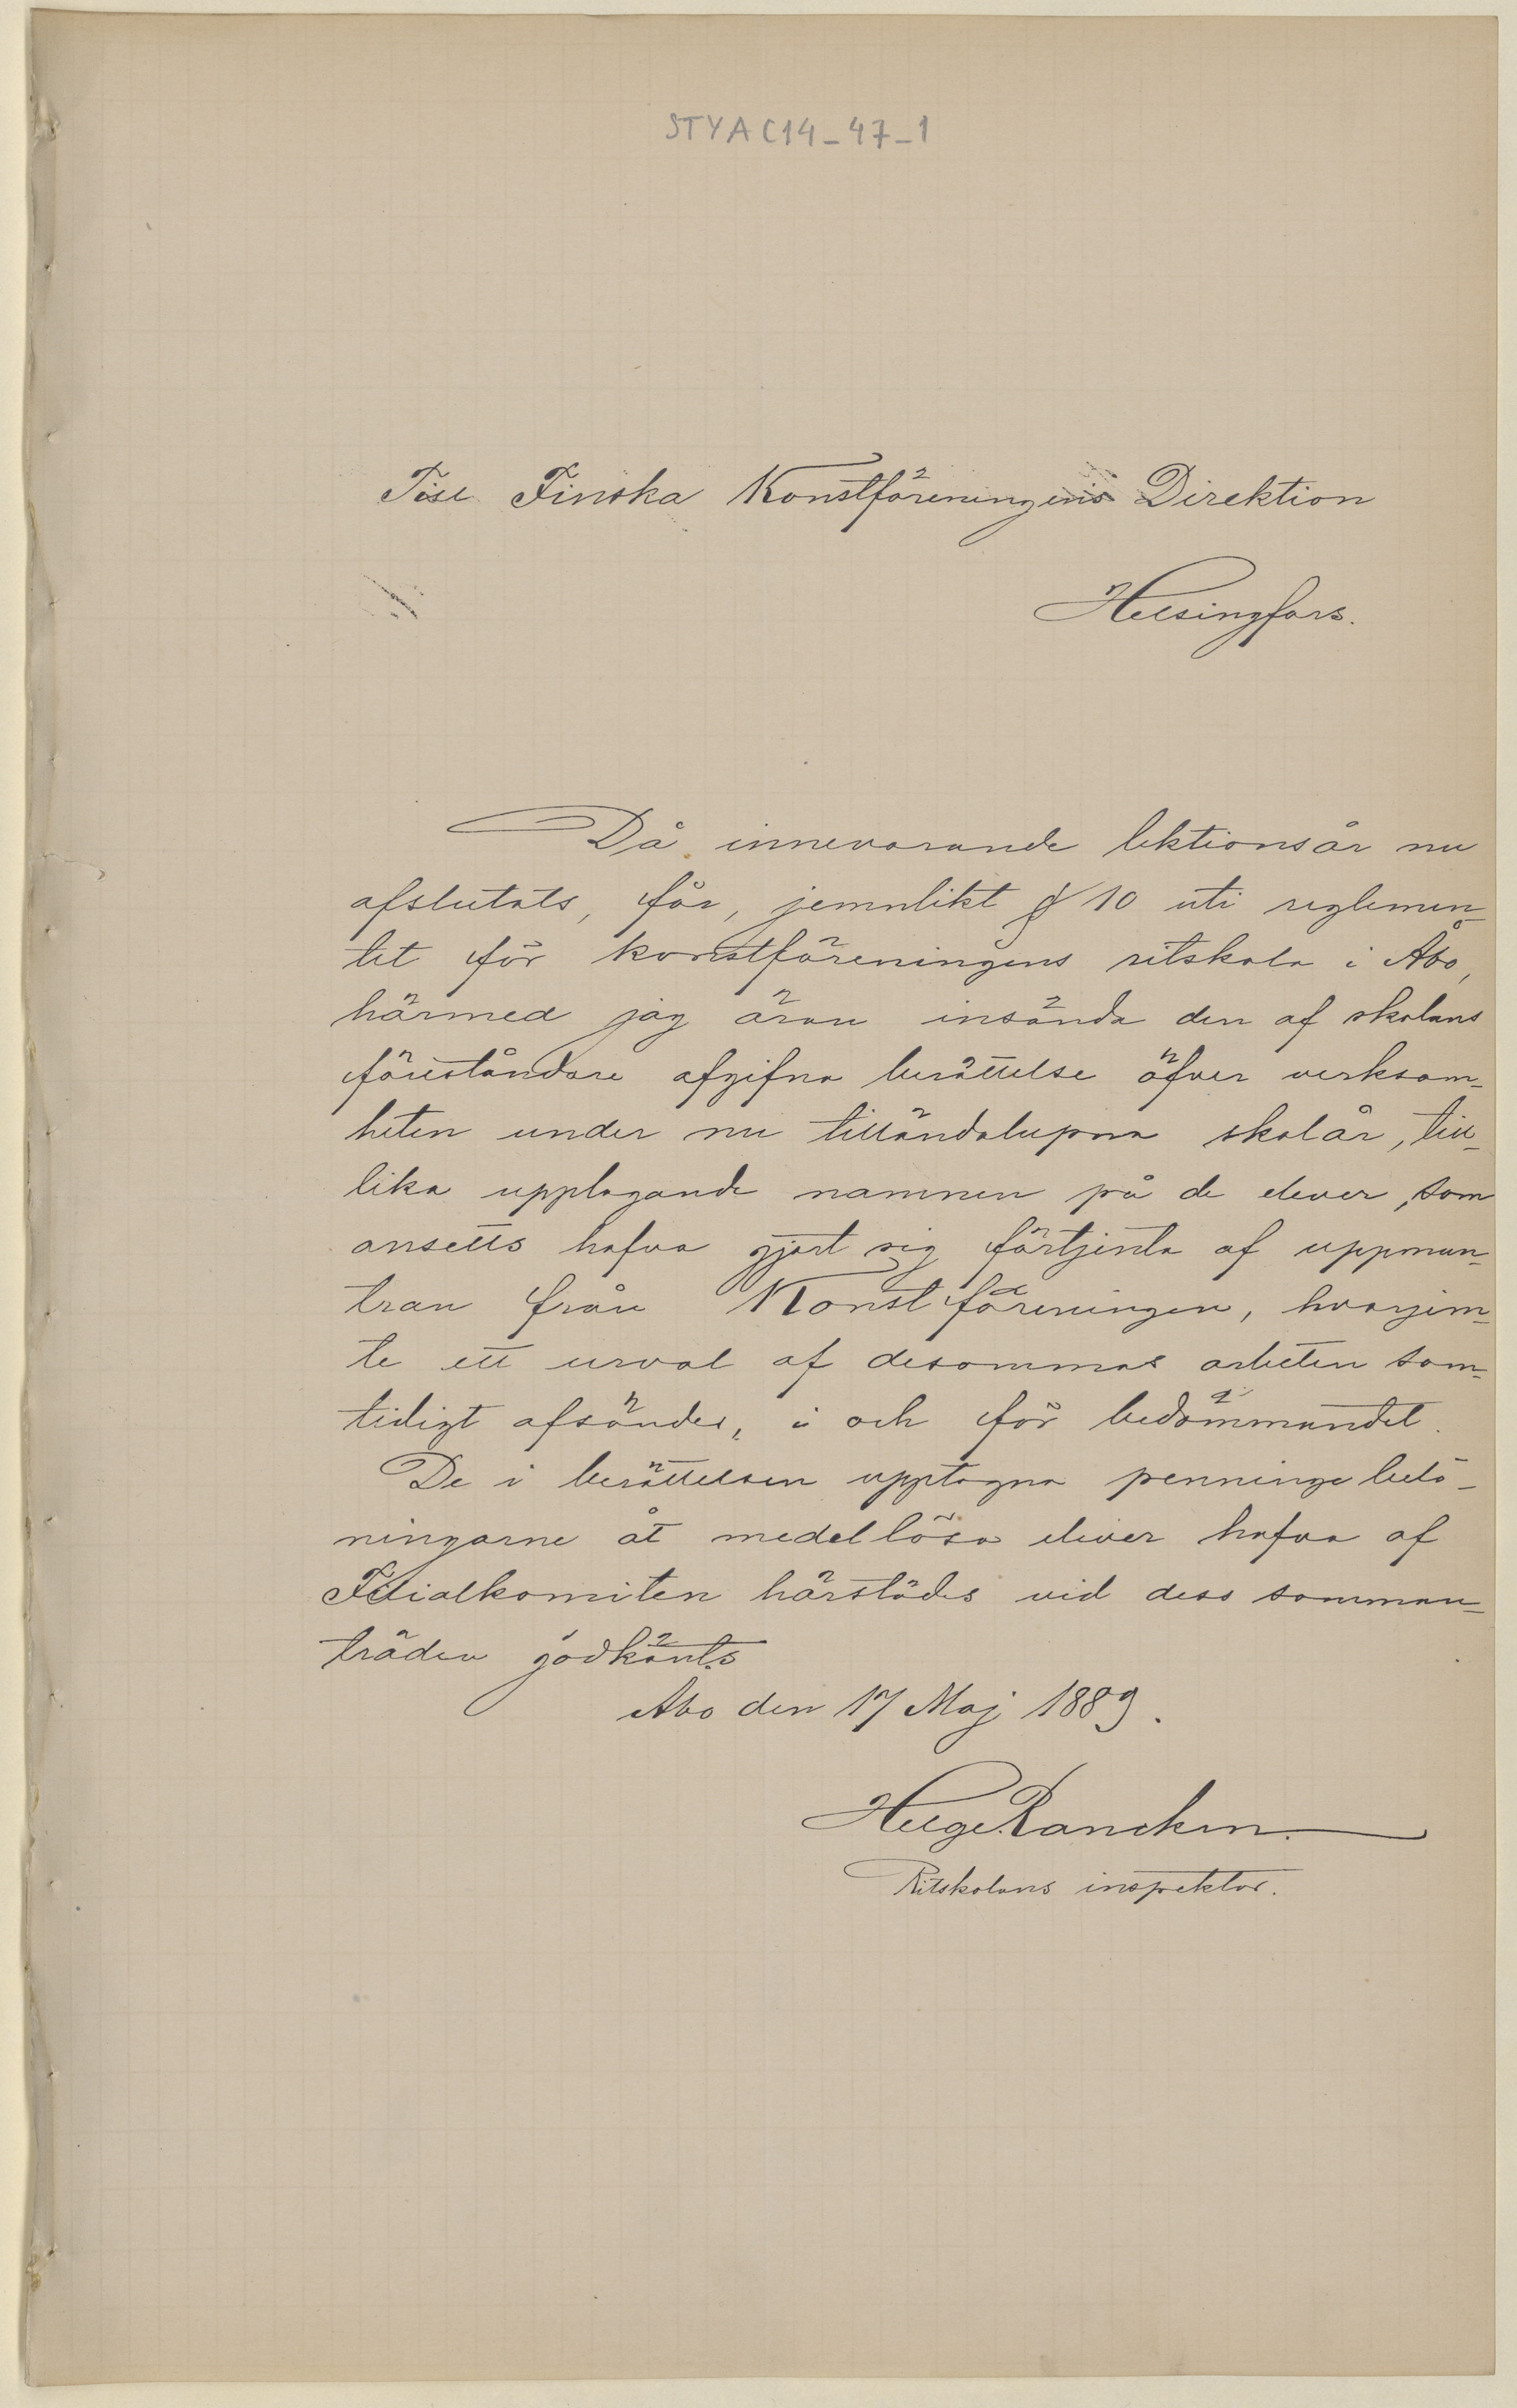 STYAC14_47_1
Till Finska Konstföreningens Direktion
Helsingfors.
Då innevarande lektionsår nu
afslutats, får, jemnlikt § 10 uti reglemen-
tet för konstföreningens ritskola i Åbo,
härmed jag äran insända den af skolans
föreståndare afgifna berättelse öfver verksam-
heten under nu tilländalupna skolår, till-
lika upptagande namnen på de elever, som
ansetts hafva gjort sig förtjenta af uppmun-
tran från Konstföreningen, hvarjem-
te ett urval af desammas arbeten sam-
tidigt afsändes, i och för bedömmandet.
De i berättelsen upptagna penninge belö-
ningarne åt medellösa elever hafva af
Filialkomiten härstädes vid dess samman-
träden godkänts
Åbo den 17 Maj 1889.
Helge Rancken.
Ritskolans inspektor.